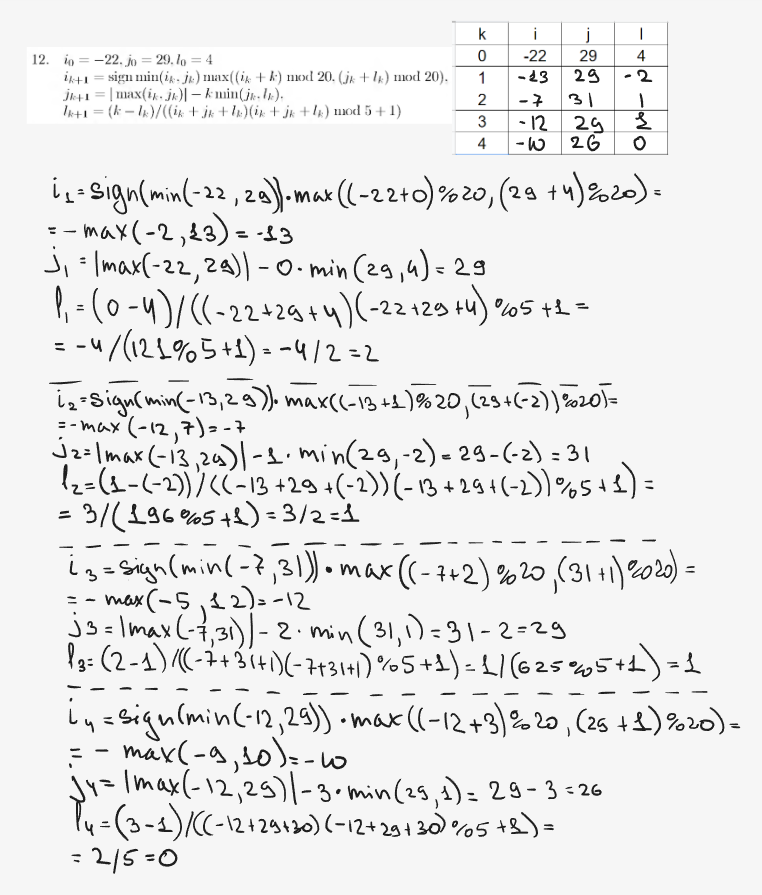 12. i₀ = −22, j₀ = 29, l₀ = 4
iₖ₊₁ = sign min(iₖ, jₖ) max((iₖ + k) mod 20, (jₖ + lₖ) mod 20),
jₖ₊₁ = | max(iₖ, jₖ)| − k min(jₖ, lₖ),
lₖ₊₁ = (k − lₖ)/((iₖ + jₖ + lₖ)(iₖ + jₖ + lₖ) mod 5 + 1)
k i j l
0 -22 29 4
1 -13 29 -2
2 -7 31 1
3 -12 29 1
4 -10 26 0
i₁=sign(min(-22,29))·max((-22+0)%20,(29+4)%20)=
=-max(-2,13)=-13
j₁=|max(-22,29)|-0·min(29,4)=29
l₁=(0-4)/((-22+29+4)(-22+29+4)%5+1=
=-4/(121%5+1)=-4/2=2
i₂=sign(min(-13,29))·max((-13+1)%20,(29+(-2))%20)=
=-max(-12,7)=-7
j₂=|max(-13,29)|-1·min(29,-2)=29-(-2)=31
l₂=(1-(-2))/((-13+29+(-2))(-13+29+(-2))%5+1)=
=3/(196%5+1)=3/2=1
i₃=sign(min(-7,31))·max((-7+2)%20,(31+1)%20)=
=-max(-5,12)=-12
j₃=|max(-7,31)|-2·min(31,1)=31-2=29
l₃=(2-1)/((-7+31+1)(-7+31+1)%5+1)=1/(625%5+1)=1
i₄=sign(min(-12,29))·max((-12+3)%20,(29+1)%20)=
=-max(-9,10)=-10
j₄=|max(-12,29)|-3·min(29,1)=29-3=26
l₄=(3-1)/((-12+29+30)(-12+29+30)%5+1)=
=2/5=0